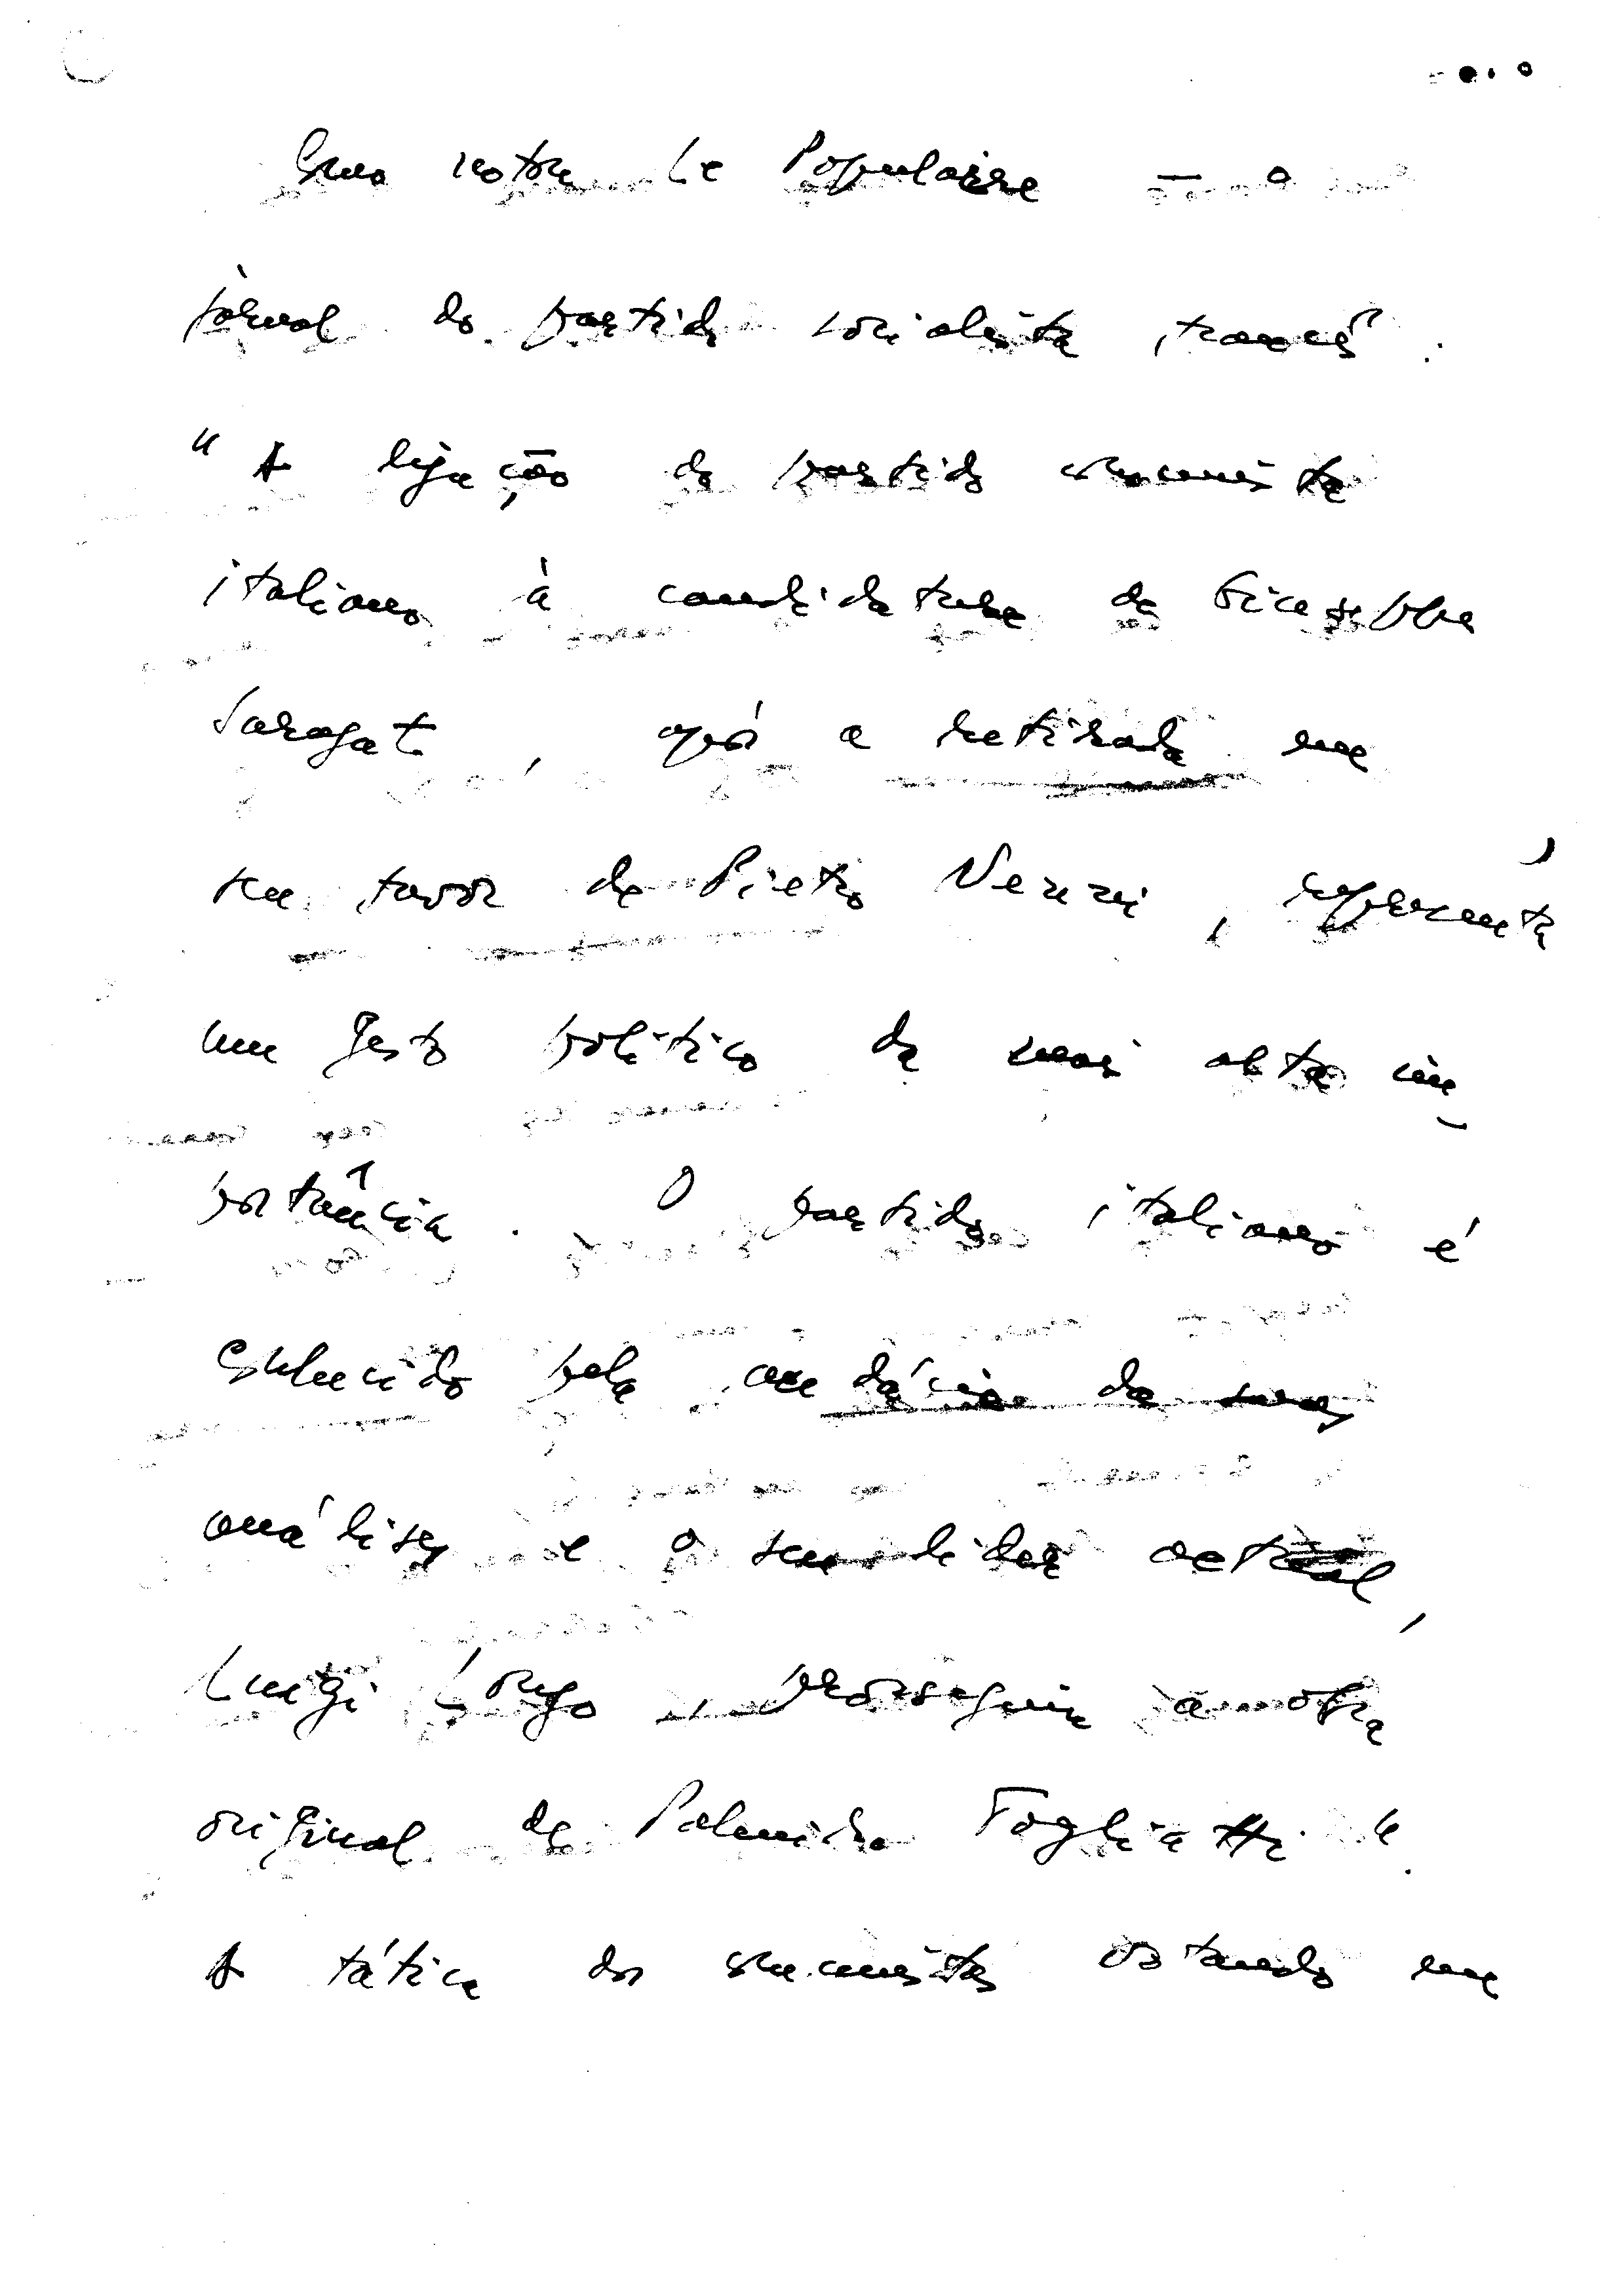 Como notou Le Populaire — o
jornal do partido socialista francês
"A ligação do partido comunista
italiano à candidatura de Giuseppe
Saragat, após a retirada em
seu favor de Pietro Nenni, representa
um gesto político da mais alta im-
portância. O partido italiano é
conhecido pela audácia de suas
análises e o seu lider actual,
Luigi Longo, prossegue a obra
original de Palmiro Togliatti".
A tática dos comunistas votando em